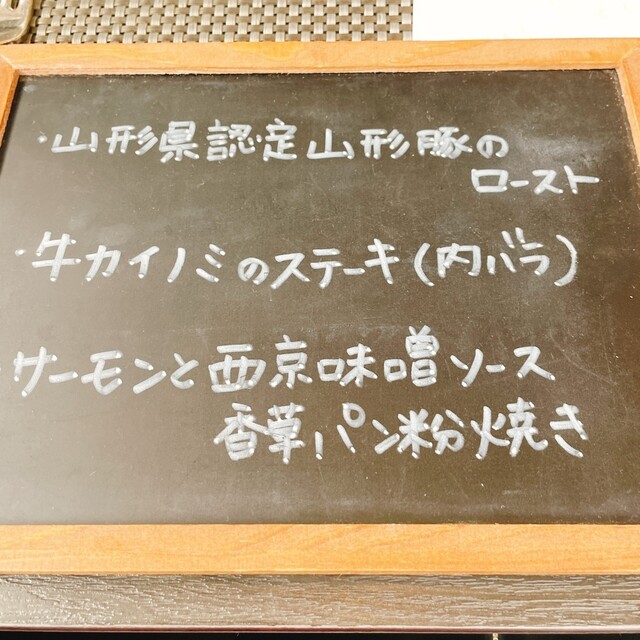 ・山形県認定山形豚の
ロースト
・牛カイノミのステーキ(内バラ)
・サーモンと西京味噌ソース
香草パン粉焼き